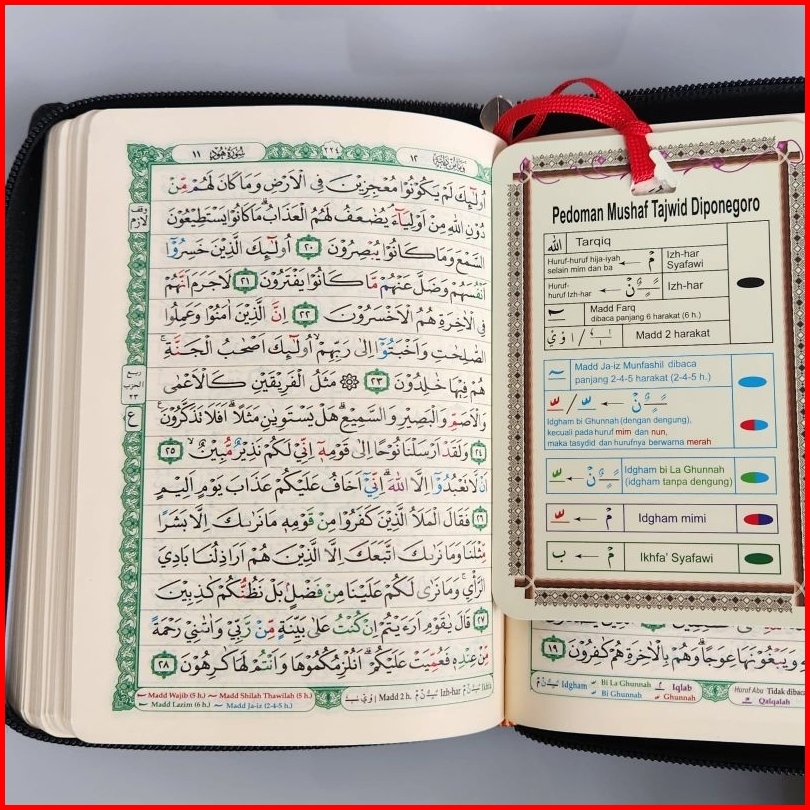 سُوْرَةُ هُوْدٍ ١١
٢٢٤
وَمَا مِنْ دَآبَّةٍ ١٢
اُولٰۤىِٕكَ لَمْ يَكُوْنُوْا مُعْجِزِيْنَ فِى الْاَرْضِ وَمَا كَانَ لَهُمْ مِّنْ
دُوْنِ اللّٰهِ مِنْ اَوْلِيَاۤءَ يُضٰعَفُ لَهُمُ الْعَذَابُ ۗ مَا كَانُوْا يَسْتَطِيْعُوْنَ
السَّمْعَ وَمَا كَانُوْا يُبْصِرُوْنَ ٢٠ اُولٰۤىِٕكَ الَّذِيْنَ خَسِرُوْٓا
اَنْفُسَهُمْ وَضَلَّ عَنْهُمْ مَّا كَانُوْا يَفْتَرُوْنَ ٢١ لَاجَرَمَ اَنَّهُمْ
فِى الْاٰخِرَةِ هُمُ الْاَخْسَرُوْنَ ٢٢ اِنَّ الَّذِيْنَ اٰمَنُوْا وَعَمِلُوا
الصّٰلِحٰتِ وَاَخْبَتُوْٓا اِلٰى رَبِّهِمْ ۙ اُولٰۤىِٕكَ اَصْحٰبُ الْجَنَّةِ ۚ
هُمْ فِيْهَا خٰلِدُوْنَ ٢٣ ۞ مَثَلُ الْفَرِيْقَيْنِ كَالْاَعْمٰى
وَالْاَصَمِّ وَالْبَصِيْرِ وَالسَّمِيْعِ ۗ هَلْ يَسْتَوِيٰنِ مَثَلًا ۗ اَفَلَا تَذَكَّرُوْنَ ࣖ
٢٤ وَلَقَدْ اَرْسَلْنَا نُوْحًا اِلٰى قَوْمِهٖٓ اِنِّيْ لَكُمْ نَذِيْرٌ مُّبِيْنٌ ۙ ٢٥
اَنْ لَّا تَعْبُدُوْٓا اِلَّا اللّٰهَ ۗ اِنِّيْٓ اَخَافُ عَلَيْكُمْ عَذَابَ يَوْمٍ اَلِيْمٍ
٢٦ فَقَالَ الْمَلَاُ الَّذِيْنَ كَفَرُوْا مِنْ قَوْمِهٖ مَا نَرٰىكَ اِلَّا بَشَرًا
مِّثْلَنَا وَمَا نَرٰىكَ اتَّبَعَكَ اِلَّا الَّذِيْنَ هُمْ اَرَاذِلُنَا بَادِيَ
الرَّأْيِ ۚ وَمَا نَرٰى لَكُمْ عَلَيْنَا مِنْ فَضْلٍۢ بَلْ نَظُنُّكُمْ كٰذِبِيْنَ
٢٧ قَالَ يٰقَوْمِ اَرَءَيْتُمْ اِنْ كُنْتُ عَلٰى بَيِّنَةٍ مِّنْ رَّبِّيْ وَاٰتٰىنِيْ رَحْمَةً
مِّنْ عِنْدِهٖ فَعُمِّيَتْ عَلَيْكُمْ ۗ اَنُلْزِمُكُمُوْهَا وَاَنْتُمْ لَهَا كٰرِهُوْنَ ٢٨
وقف لازم
ربع الحزب ٢٣
ع
Madd Wajib (5 h.) Madd Shilah Thawilah (5 h.)
Madd Lazim (6 h.) Madd Ja-iz (2-4-5 h.)
Madd 2 h. Izh-har
Pedoman Mushaf Tajwid Diponegoro
الله Tarqiq
Huruf-huruf hija-iyah selain mim dan ba مْ Izh-har Syafawi
Huruf-huruf Izh-har نْ Izh-har
Madd Farq
dibaca panjang 6 harakat (6 h.)
ا وْ يْ Madd 2 harakat
Madd Ja-iz Munfashil dibaca
panjang 2-4-5 harakat (2-4-5 h.)
Idgham bi Ghunnah (dengan dengung),
kecuali pada huruf mim dan nun,
maka tasydid dan hurufnya berwarna merah
نْ Idgham bi La Ghunnah
(idgham tanpa dengung)
مْ Idgham mimi
ب مْ Ikhfa' Syafawi
وَيَبْغُوْنَهَا عِوَجًا ۗ وَهُمْ بِالْاٰخِرَةِ هُمْ كٰفِرُوْنَ ١٩
Idgham Bi La Ghunnah Iqlab
Bi Ghunnah Ghunnah
Huruf Abu Tidak dibaca
Qalqalah